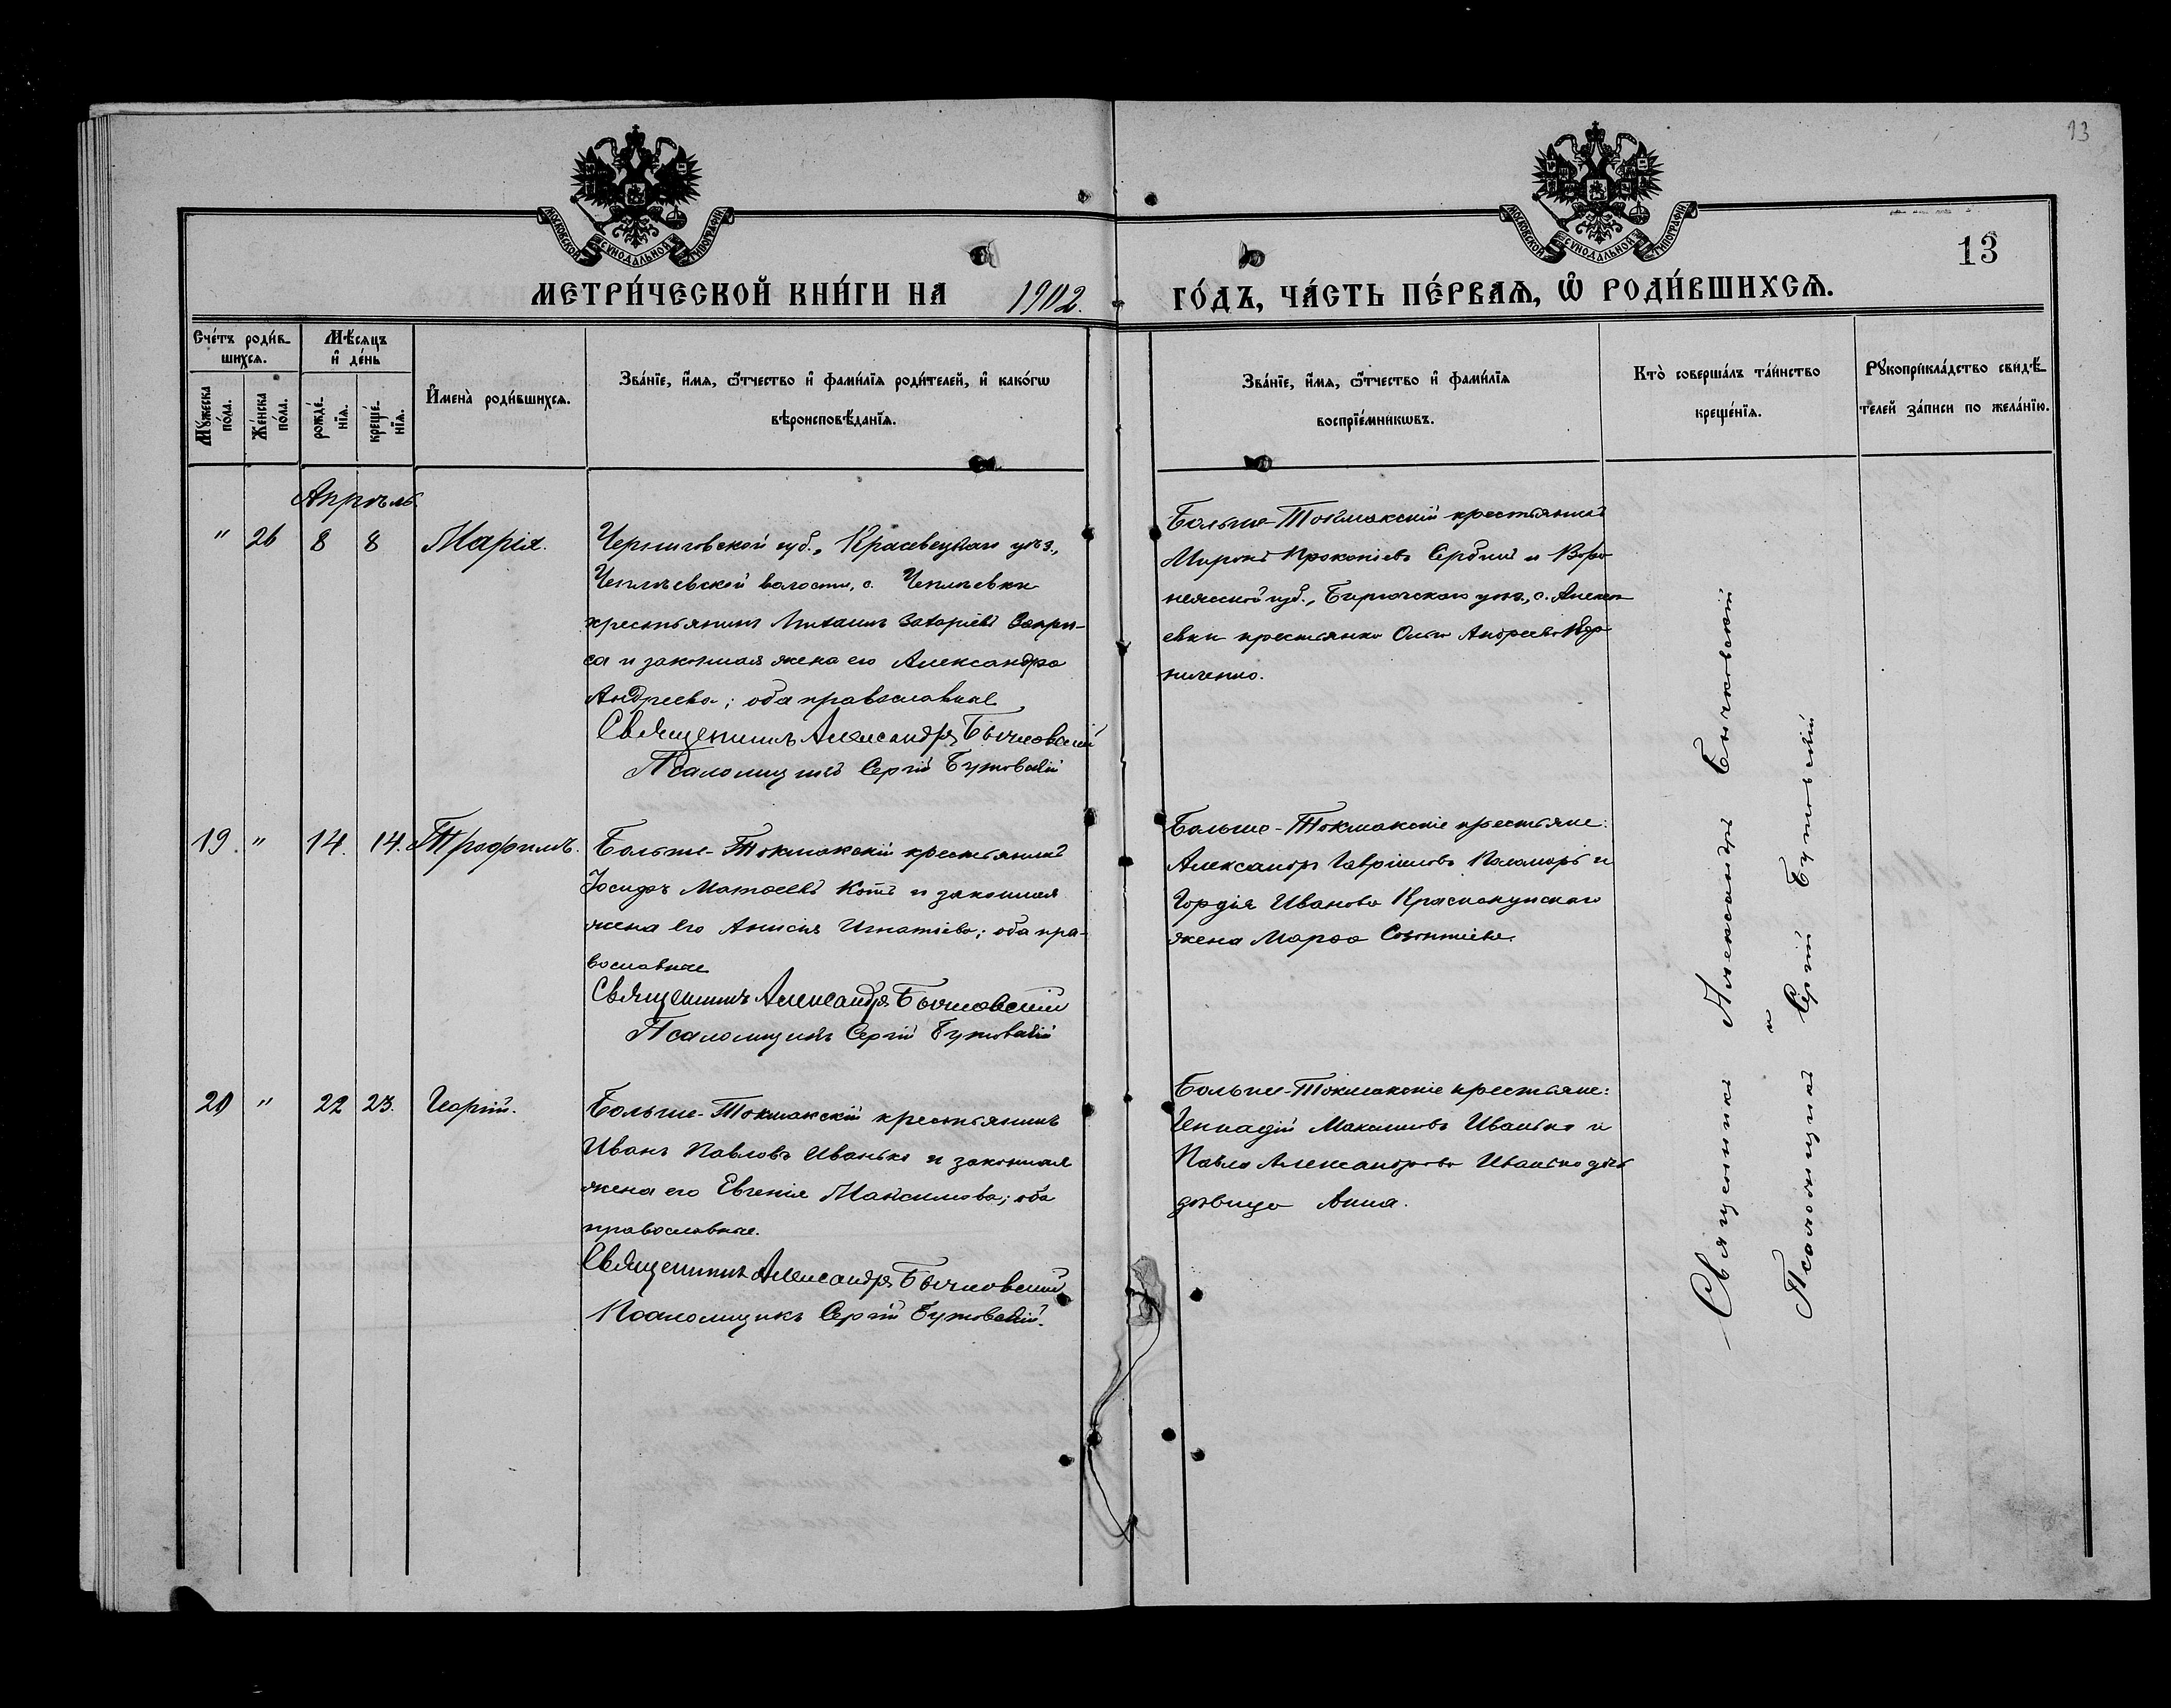 13
МОСКОВСКОЙ СѴНОДАЛЬНОЙ ТИПОГРАФІИ
МОСКОВСКОЙ СѴНОДАЛЬНОЙ ТИПОГРАФІИ
13
МЕТРИ́ЧЕСКОЙ КНИ́ГИ НА 1902. ГО́ДЪ, ЧА́СТЬ ПЕ́РВАѦ, Ѡ РОДИ́ВШИХСѦ.
Сче́тъ роди́в-
шихсѧ.
Мѣ́сяцъ
и҆ де́нь
Мꙋ́жеска по́ла.
Же́нска по́ла.
рожде́-
нїѧ.
креще́-
нїѧ.
И҆мена̀ роди́вшихсѧ.
Зва́нїе, и҆́мѧ, ѻ҆́тчество и҆ фами́лїѧ роди́телей, и҆ како́гѡ
вѣроисповѣ́данїѧ.
Зва́нїе, и҆́мѧ, ѻ҆́тчество и҆ фами́лїѧ
воспрїе́мникѡвъ.
Кто̀ соверша́лъ та́инство
креще́нїѧ.
Рꙋкоприкла́дство свидѣ́-
телей за́писи по жела́нїю.
Апрѣль
" 26 8 8 Марія.
Черниговской губ., Кралевецкаго уѣз.,
Чеплѣевской волости, с. Чеплѣевки
крестьянинъ Михаилъ Захаріевъ
и законная жена его Александра
Андреева; оба православные
Священникъ Александръ Бычковскій
Псаломщикъ Сергій Бутовскій
Больше-Токмакскій крестьянинъ
Миронъ Прокопіевъ Сербинъ и Воро-
нежской губ., Бирючскаго уѣз., с. Алексе-
евки крестьянка Ольга Андреева Кор-
ниленко.
19. " 14. 14. Трофимъ.
Больше-Токмакскій крестьянинъ
Іосифъ Матѳеевъ Котъ и законная
жена его Анисія Игнатіева; оба пра-
вославные
Священникъ Александръ Бычковскій
Псаломщикъ Сергій Бутовскій
Больше-Токмакскіе крестьяне:
Александръ Гавріиловъ Паламарь и
Гордія Иванова Краснокутскаго
жена Марѳа Созонтіева.
20 " 22 23. Георгій.
Больше-Токмакскій крестьянинъ
Иванъ Павловъ Иванько и законная
жена его Евгенія Максимова; оба
православные.
Священникъ Александръ Бычковскій
Псаломщикъ Сергій Бутовскій.
Больше-Токмакскіе крестьяне:
Геннадій Максимовъ Иванько и
Павла Александрова Иванько дочь
дѣвица Анна.
Священникъ Александръ Бычковскій
и
Псаломщикъ Сергій Бутовскій